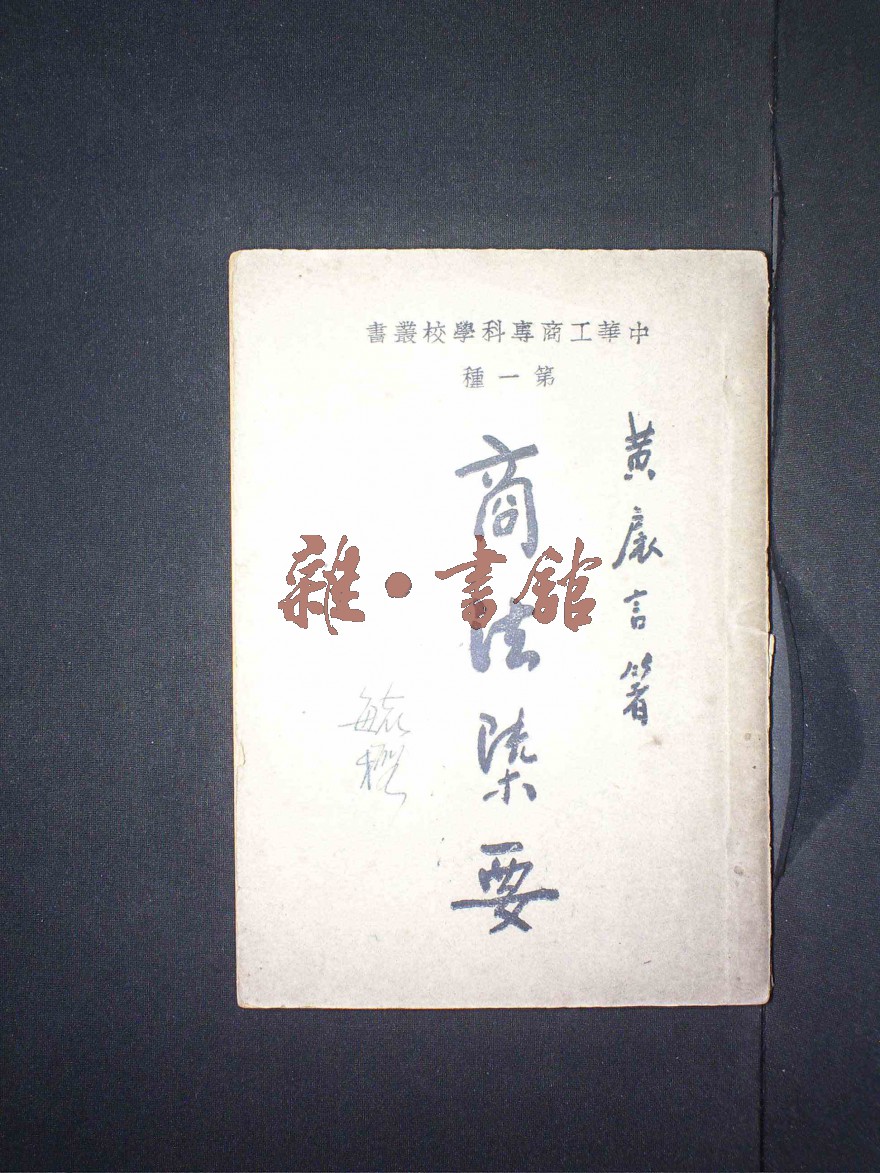 中華工商專科學校叢書
第一種
黃㢘言著
商法槩要
雜·書館